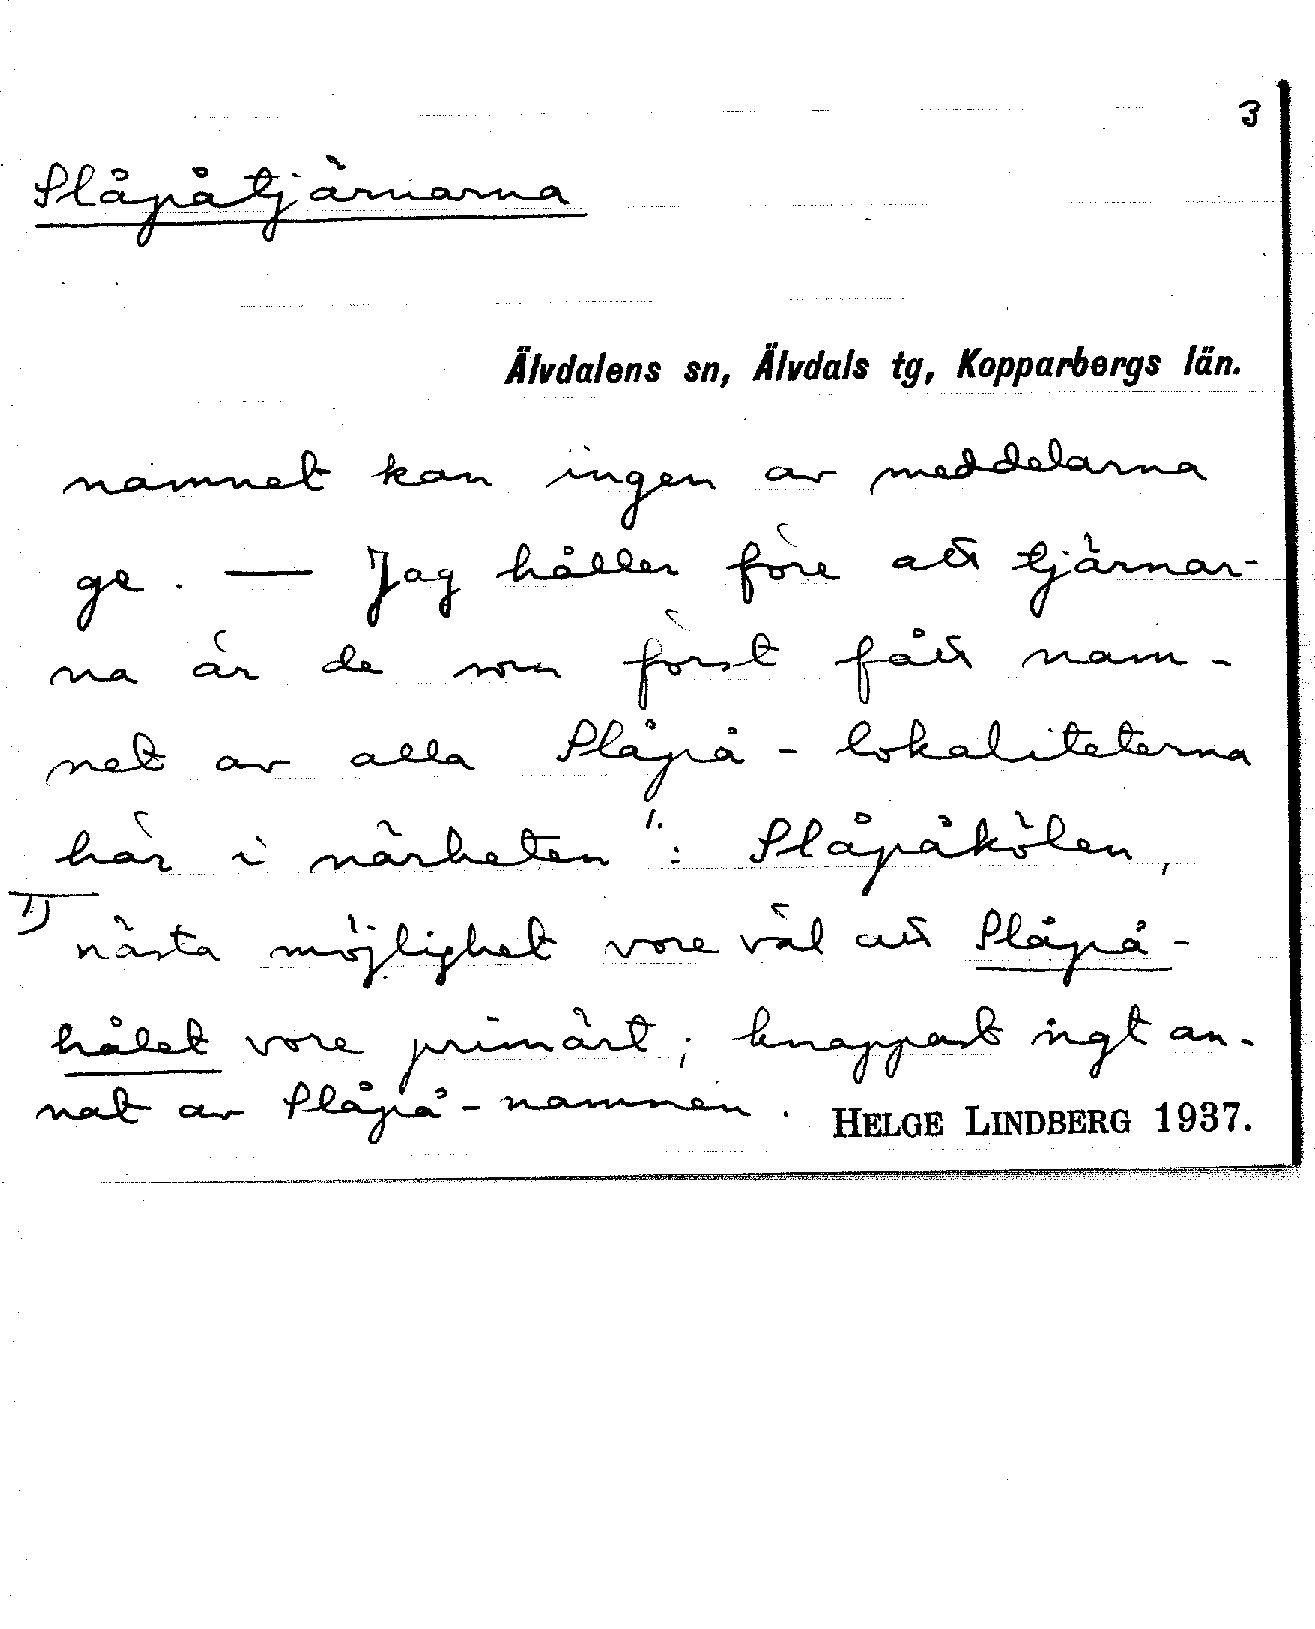 3
Slåpåtjärnarna
Älvdalens sn, Älvdals tg, Kopparbergs län.
namnet kan ingen av meddelarna
ge. — Jag håller före att tjärnar-
na är de som först fått nam-
net av alla Slåpå-lokaliteterna
här i närheten 1. : Slåpåkölen,
1) nästa möjlighet vore väl att Slåpå-
hålet vore primärt; knappast ngt an-
nat av Slåpå-namnen.
HELGE LINDBERG 1937.